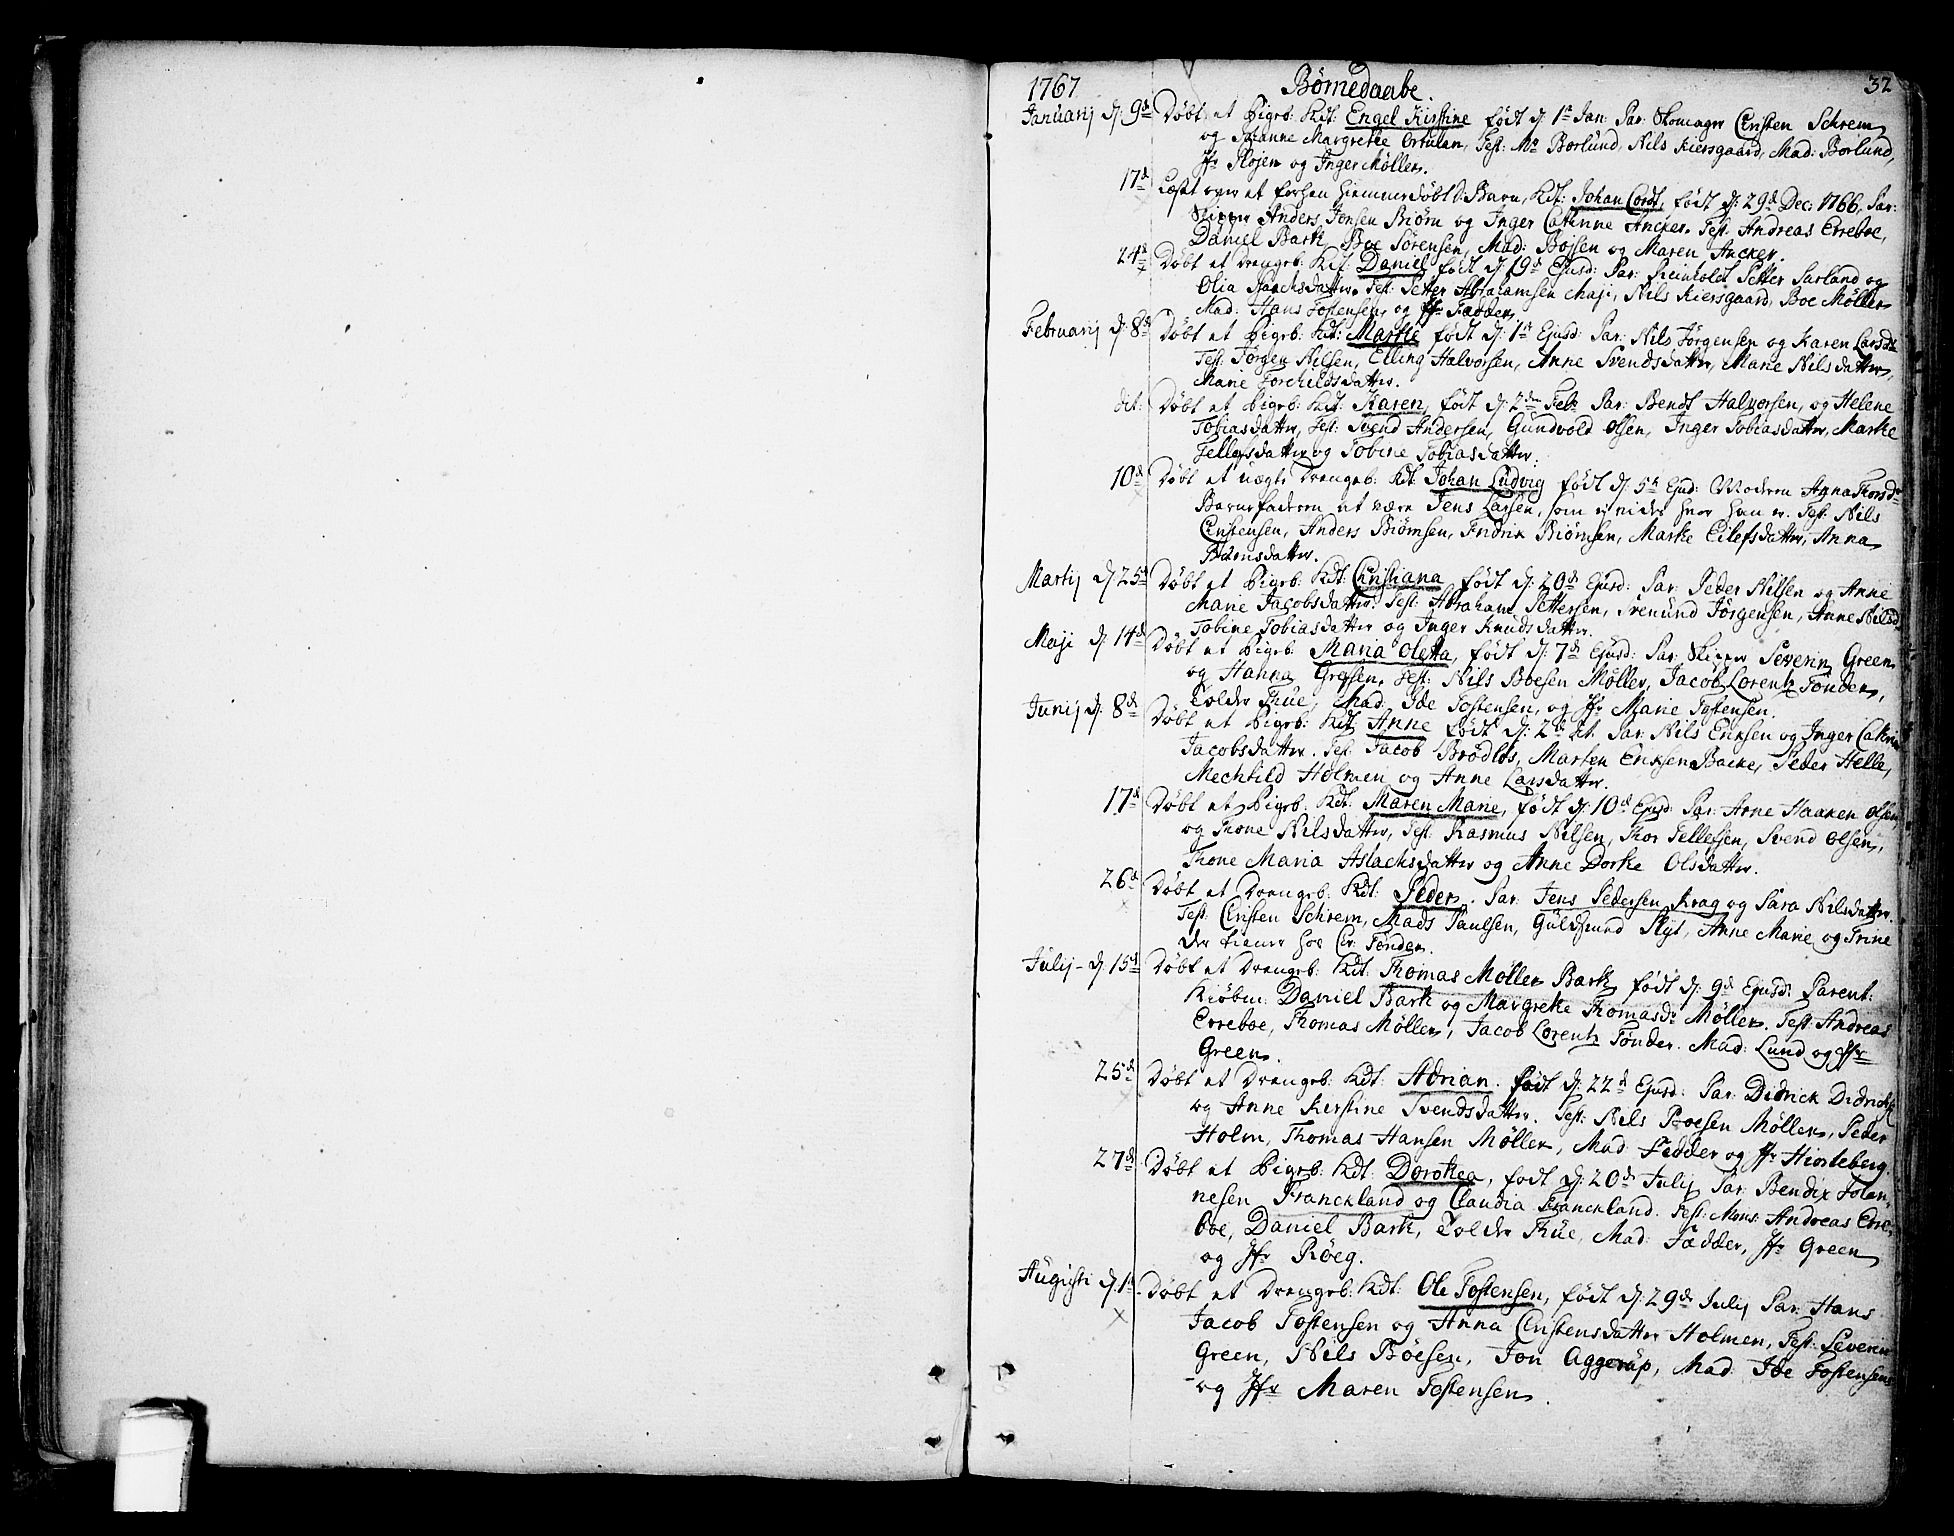 1767 Børnedaabe. 32
Januarij d. 9d Døbt et Pigeb: Kdt: Engel Kirstine født d: 1t Jan: Par: Skomager Christen Schrem
og Margrethe Test: Mr Borlund, Nils Kiersgaard, Mad: Borlund,
Jfr Plojen og Inger Møller.
17d Læst over et forhen hiemmedøbt Barn, Kdt: Johan Cordt, født d: 29d Dec: 1766, Par:
Skipper Anders Jensen Biørn og Inger Cathrine Ancker. Test: Andreas Erreboe,
Daniel Bark, Boe Sørensen, Mad: Bojsen og Maren Ancker.
24d Døbt et Drengeb: Kdt: Daniel født d: 19d Ejusd: Par: Reinholdt Petter Farland og
Olia Test: Petter Abrahamsen Maji, Nils Kiersgaard, Boe Møller
Mad: Hans Tostensen og Jfr Fædder,
Februarij d: 8d Døbt et Pigeb: Kdt: Marthe født d: 1t Ejusd: Par: Nils Jørgensen og Karen Larsdtr
Test: Jørgen Nilsen, Elling Halvorsen, Anne Svendsdatter, Marie Nilsdatter,
Marie Torchildsdatter.
dit: Døbt et Pigeb: Kdt: Karen, født d: 2den Feb: Par: Bendt Halvorsen, og Helene
Tobiasdatter, Test: Svend Andersen, Gundvold Olsen, Inger Tobiasdatter, Marthe
Tellefsdatter og Tobine Tobiasdatter.
10d Døbt et uægte Drengeb: Kdt: Johan Ludvig født d: 5t Ejusd: Moderen Agna Thorsdr
Barnefaderen at være Jens Larsen, som ej vides hvor han er. Test: Nils
Christensen, Anders Biørnsen, Fridrik Biørnsen, Marthe Eilefsdatter, Anna
Biørnsdatter.
Martij d. 25d Døbt et Pigeb: Kdt: Christiana født d: 20d Ejusd: Par: Peder Nilsen og Anne
Marie Jacobsdatter. Test: Abraham Pettersen, Svenund Jørgensen, Anne Nilsd.
Tobine Tobiasdatter og Inger Knudsdatter.
Maji d. 14d Døbt et Pigeb: Maria Oletta, født d: 7d Ejusd: Par: Skipper Severin Green
og Hanna Gregsen, Test: Nils Boesen Møller, Jacob Lorentz Tønder,
Tolder Thue, Mad: Ide Tostensen, og Jfr Marie Tostensen.
Junij d. 8d Døbt et Pigeb: Kdt: Anne født d: 2d dt. Par: Nils Erichsen og Inger Cathrine
Jacobsdatter. Test: Jacob Brodløs, Marthen Erichsen Backe, Peder Helle,
Mechtild Holmen og Anne Larsdatter.
17d Døbt et Pigeb: Kdt: Maren Marie, født d: 10d Ejusd: Par: Arne Haaken Olsen,
og Thone Nilsdatter, Test: Rasmus Nilsen, Thor Tellefsen, Svend Olsen,
Thone Maria Aslachsdatter og Anne Dorthe Olsdatter.
26d Døbt et Drengeb: Kdt: Peder. Par: Jens Pedersen Krag og Sara Nilsdatter.
Test: Christen Schrem, Mads Paulsen, Guldmund Slyt, Anne Marie og Trine
der tiener hos Cr: Tønder.
Julij d. 15d Døbt et Drengeb: Kdt: Thomas Møller Bark, født d: 9d Ejusd: Parent:
Kiøbm: Daniel Bark og Margrethe Thomasdr Møller. Test: Andreas
Erreboe, Thomas Møller, Jacob Lorentz Tønder. Mad: Lund og Jfr
Green.
25d Døbt et Drengeb: Kdt: Adrian. født d: 22d Ejusd: Par: Didrick Didricks
og Anne Kirstine Svendsdatter. Test: Nils Boesen Møller, Peder
Holm, Thomas Hansen Møller, Mad: Fedder og Jfr Hiorteberg.
27d Døbt et Pigeb: Kdt: Dorothea, født d: 20d Julij Par: Bendix Johan-
nesen Franckland og Claudia Franckland. Test: Mons: Andreas Erre-
boe, Daniel Bark, Tolder Thue, Mad: Fædder, Jfr Green
og Jfr Røeg.
Augusti d. 1t Døbt et Drengeb: Kdt: Ole Tostensen, født d: 29d Julij Par: Hans
Jacob Tostensen og Anna Christensdatter Holmen, Test: Severin
Green, Nils Bøesen, Jon Aggerup, Mad: Ide Tostensens
og Jfr Maren Tostensen.